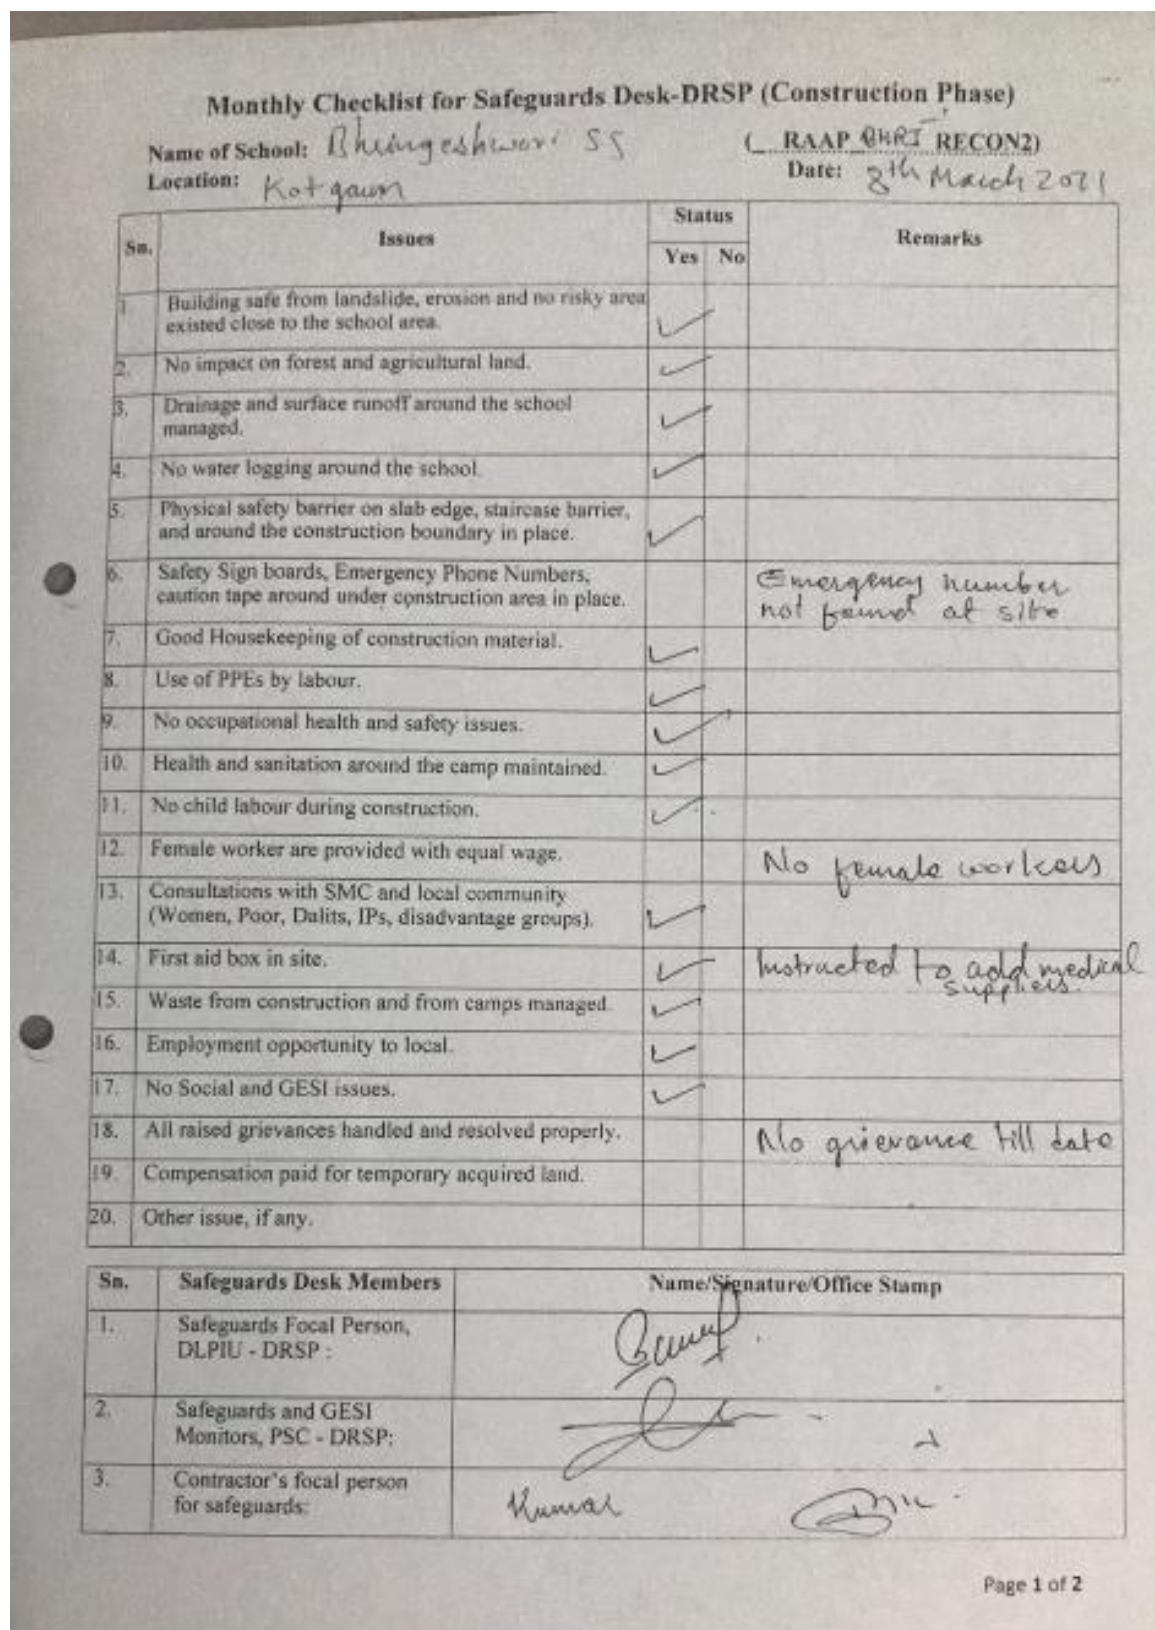 Monthly Checklist for Safeguards Desk-DRSP (Construction Phase)
Name of School: Bhimgeshwori SS
( RAAP RECON2)
Location: Kotgaun
Date: 8th March 2021
Sn. Issues Status Remarks
Yes No
1 Building safe from landslide, erosion and no risky area
existed close to the school area.
2. No impact on forest and agricultural land.
3. Drainage and surface runoff around the school
managed.
4. No water logging around the school.
5. Physical safety barrier on slab edge, staircase barrier,
and around the construction boundary in place.
6. Safety Sign boards, Emergency Phone Numbers, Emergency number
caution tape around under construction area in place. not found at site
7. Good Housekeeping of construction material.
8. Use of PPEs by labour.
9. No occupational health and safety issues.
10. Health and sanitation around the camp maintained.
11. No child labour during construction.
12. Female worker are provided with equal wage. No female workers
13. Consultations with SMC and local community
(Women, Poor, Dalits, IPs, disadvantage groups).
14. First aid box in site. Instructed to add medical
suppliers.
15. Waste from construction and from camps managed.
16. Employment opportunity to local.
17. No Social and GESI issues.
18. All raised grievances handled and resolved properly. No grievance till date
19. Compensation paid for temporary acquired land.
20. Other issue, if any.
Sn. Safeguards Desk Members Name/Signature/Office Stamp
1. Safeguards Focal Person,
DLPIU - DRSP :
2. Safeguards and GESI
Monitors, PSC - DRSP:
3. Contractor's focal person
for safeguards: Kumar
Page 1 of 2